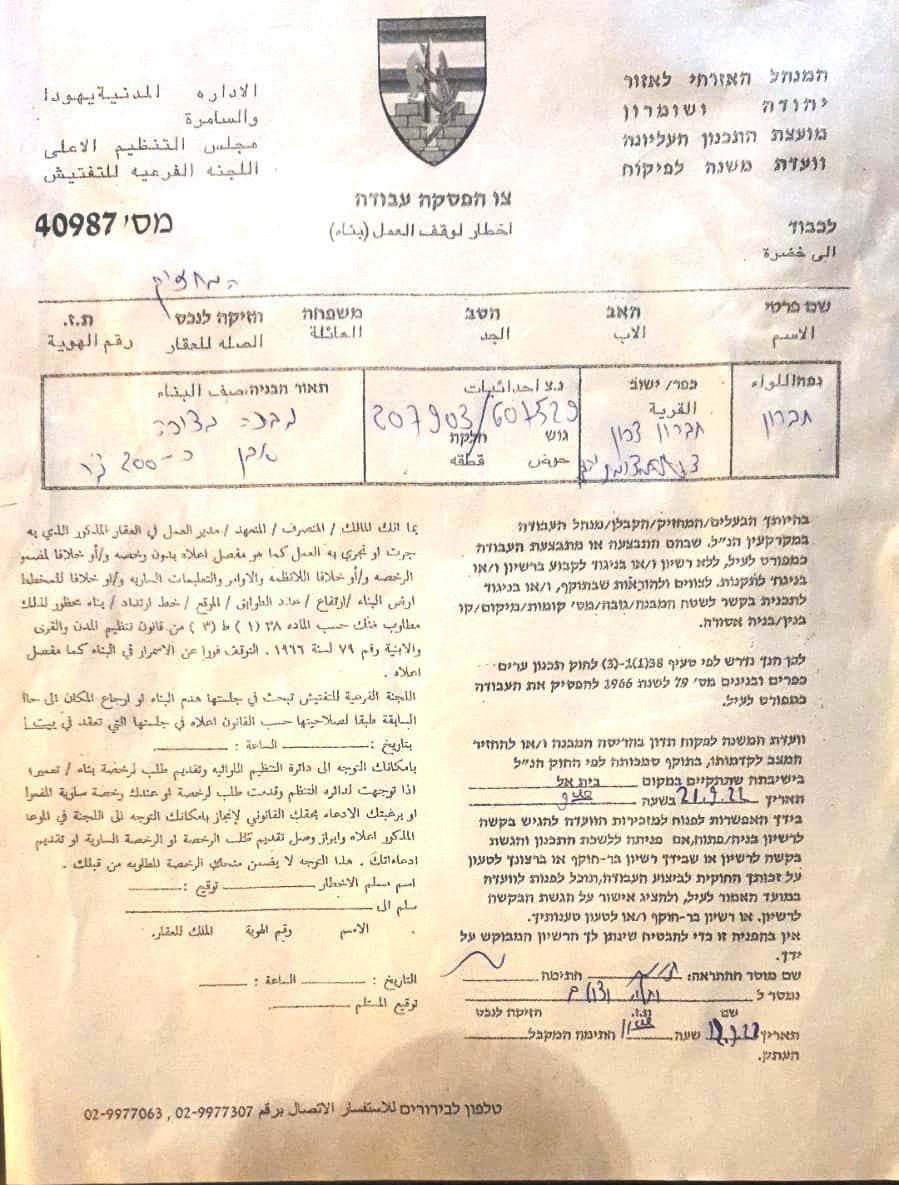 המנהל האזרחי לאזור
יהודה ושומרון
מועצת התכנון העליונה
וועדת משנה לפיקוח
الاداره المدنية يهودا
والسامرة
مجلس التنظيم الاعلى
اللجنه الفرعيه للتفتيش
צו הפסקה עבודה
اخطار لوقف العمل (بناء)
מס' 40987
לכבוד
الى حضرة
המחזיק
שם פרטי האב הסב משפחה חזיקה לנכס ת.ז.
الاسم الاب الجد العائلة الصله للعقار رقم الهوية
נפה اللواء
חברון
כפר/ ישוב
القرية
חברון צפון
נ.צ احداثيات
207903/607529
גוש חלקה
حوض قطعه
תאור הבניה وصف البناء
אבן כ-200
בהיותך הבעלים/המחזיק/הקבלן/מנהל העבודה
במקרקעין הנ"ל, שבהם התבצעה או מתבצעת העבודה
כמפורט לעיל, ללא רשיון ו/או בניגוד לקבוע ברשיון ו/או
בניגוד לתקנות, לצווים ולהוראות שבתוקף, ו/או בניגוד
לתכנית בקשר לשטח המבנה/גובה/מס' קומות/מיקום/קו
בנין/בניה אסורה.
לכן הנך נדרש לפי סעיף 38(1)-(3) לחוק תכנון ערים
כפרים ובנינים מס' 79 לשנת 1966 להפסיק את העבודה
כמפורט לעיל.
וועדת המשנה לפקוח תדון בהריסת המבנה ו/או להחזיר
המצב לקדמותו, בתוקף סמכותה לפי החוק הנ"ל
בישיבתה שתתקיים במקום בית אל
תאריך 21.9.22 בשעה
בידך האפשרות לפנות למזכירות הוועדה להגיש בקשה
לרשיון בניה/פתוח, אם פניתה ללשכת התכנון והגשת
בקשה לרשיון או שבידך רשיון בר-תוקף או ברצונך לטעון
על זכותך החוקית לביצוע העבודה, תוכל לפנות לוועדה
במועד האמור לעיל, ולהציג אישור על הגשת הבקשה
לרשיון. או רשיון בר-תוקף ו/או לטעון טענותיך.
אין בהפניה זו כדי להבטיח שינתן לך הרשיון המבוקש על
ידך.
שם מוסר ההתראה: חתימה
נמסר ל
שם ת.ז. חזיקה לנכס
תאריך שעה חתימת המקבל
העתק.
بما انك المالك / المتصرف / المتعهد / مدير العمل في العقار المذكور الذي به
جرت او تجري به العمل كما هو مفصل اعلاه بدون رخصه و/أو خلافا لمضمو
الرخصه و/أو خلافا للانظمه والاوامر والتعليمات الساريه و/او خلافا للمخطط
ارض البناء /ارتفاع / عدد الطوابق / الموقع / خط ارتداد / بناء محظور لذلك
مطلوب منك حسب الماده ٣٨ (١) ط (٣) من قانون تنظيم المدن والقرى
والابنية رقم ٧٩ لسنة ١٩٦٦ . التوقف فورا عن الاسمرار في البناء كما مفصل
اعلاه .
اللجنة الفرعية للتفتيش تبحث في جلستها هدم البناء او ارجاع المكان الى حال
السابقة طبقا لصلاحيتها حسب القانون اعلاه في جلستها التي تعقد في بيت ا
بتاريخ : الساعة :
بامكانك التوجه الى دائرة التنظيم اللوائيه وتقديم طلب لرخصة بناء / تعمير،
اذا توجهت لدائره التنظم وقدمت طلب لرخصة او عندك رخصة سارية المفعوا
او برغبتك الادعاء بحقك القانوني لإنجاز بامكانك التوجه الى اللجنة في الموعد
المذكور اعلاه وابراز وصل تقديم طلب الرخصة او الرخصة السارية او تقديم
ادعاءاتك . هذا التوجه لا يضمن منحك الرخصة المطلوبه من قبلك .
اسم مسلم الاخطار توقيع :
سلم الى
الاسم رقم الهوية الملك للعقار.
التاريخ : الساعة :
توقيع المستلم
טלפון לבירורים للاستفسار الاتصال برقم 02-9977307 , 02-9977063